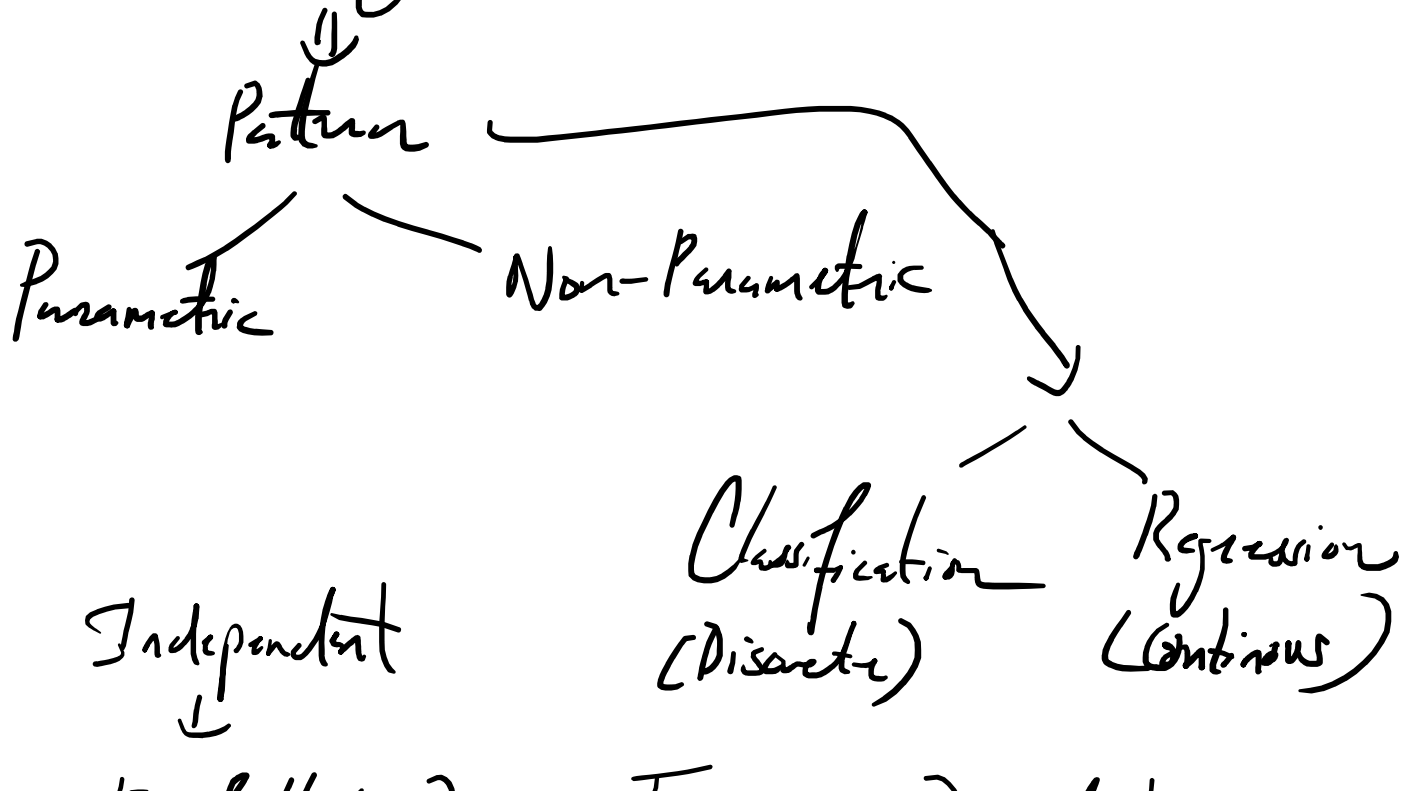 Pattern
Parametric
Non-Parametric
Classification
Regression
(Discrete)
(Continous)
Independent